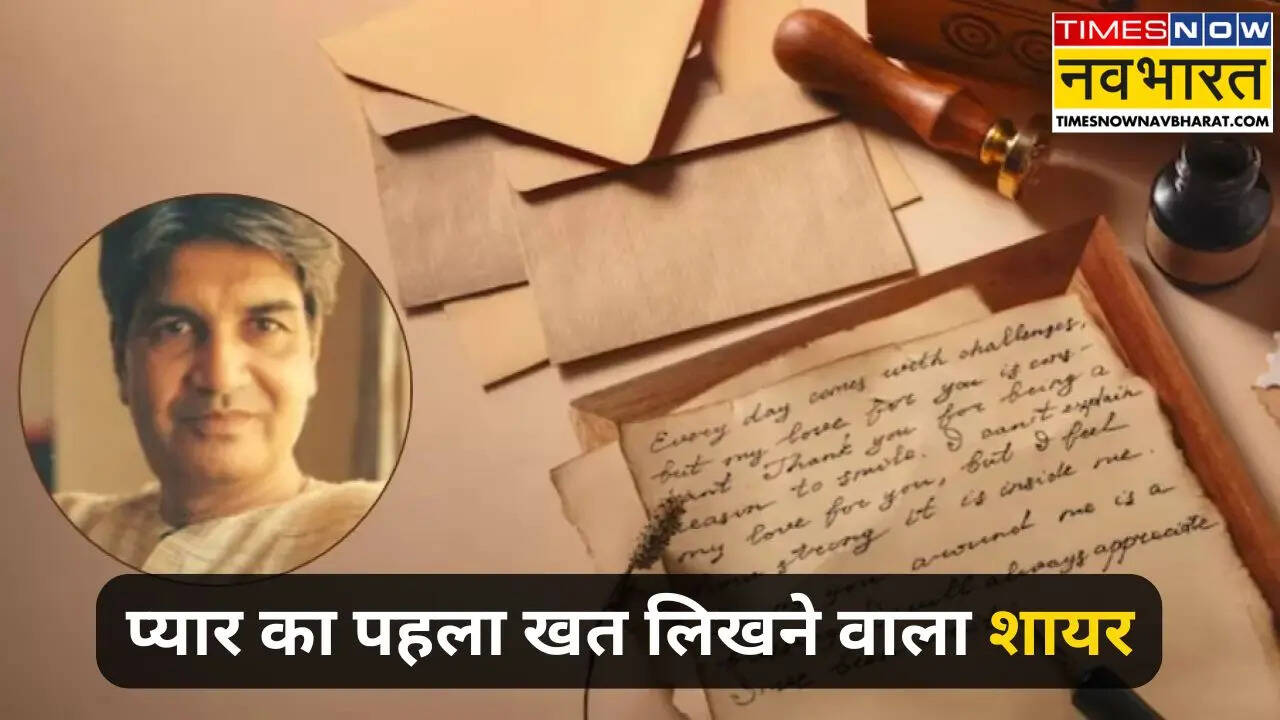 TIMES NOW
नवभारत
TIMESNOWNAVBHARAT.COM
Every day comes with challenges,
but my love for you is cons-
tant. Thank you for being a
reason to smile. I can't explain
my love for you, but I feel
how strong it is inside me.
you around me is a
will always appreciate
प्यार का पहला खत लिखने वाला शायर